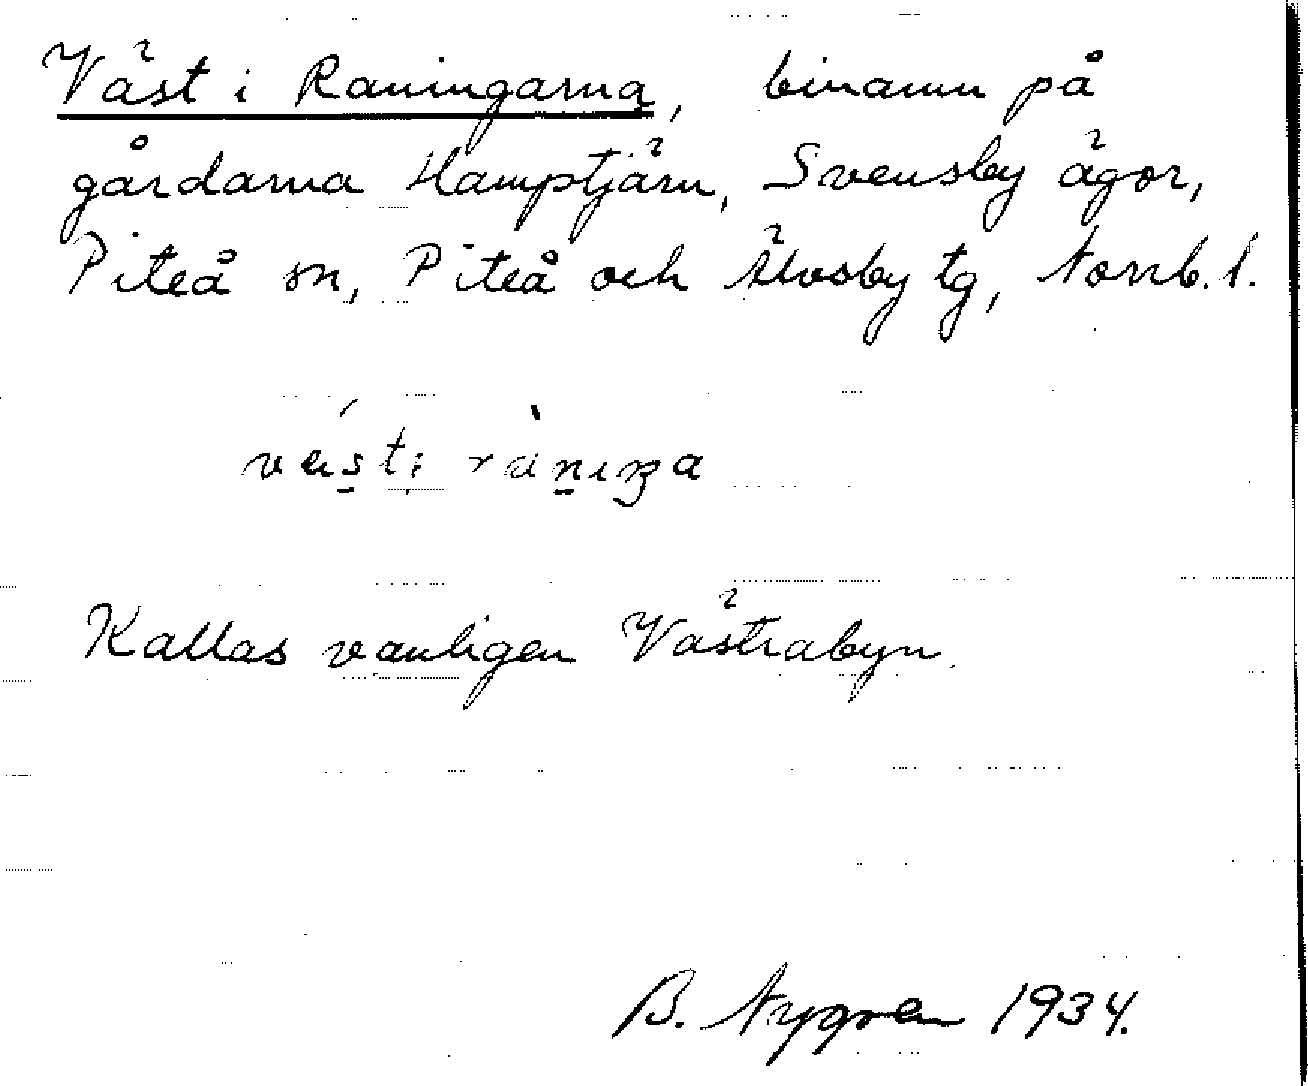 Väst i Raningarna, binamn på
gårdarna Hamptjärn, Svensby ägor,
Piteå sn, Piteå och Älvsby tg, Norrb. l.
Kallas vanligen Västrabyn.
B. Nygren 1934.